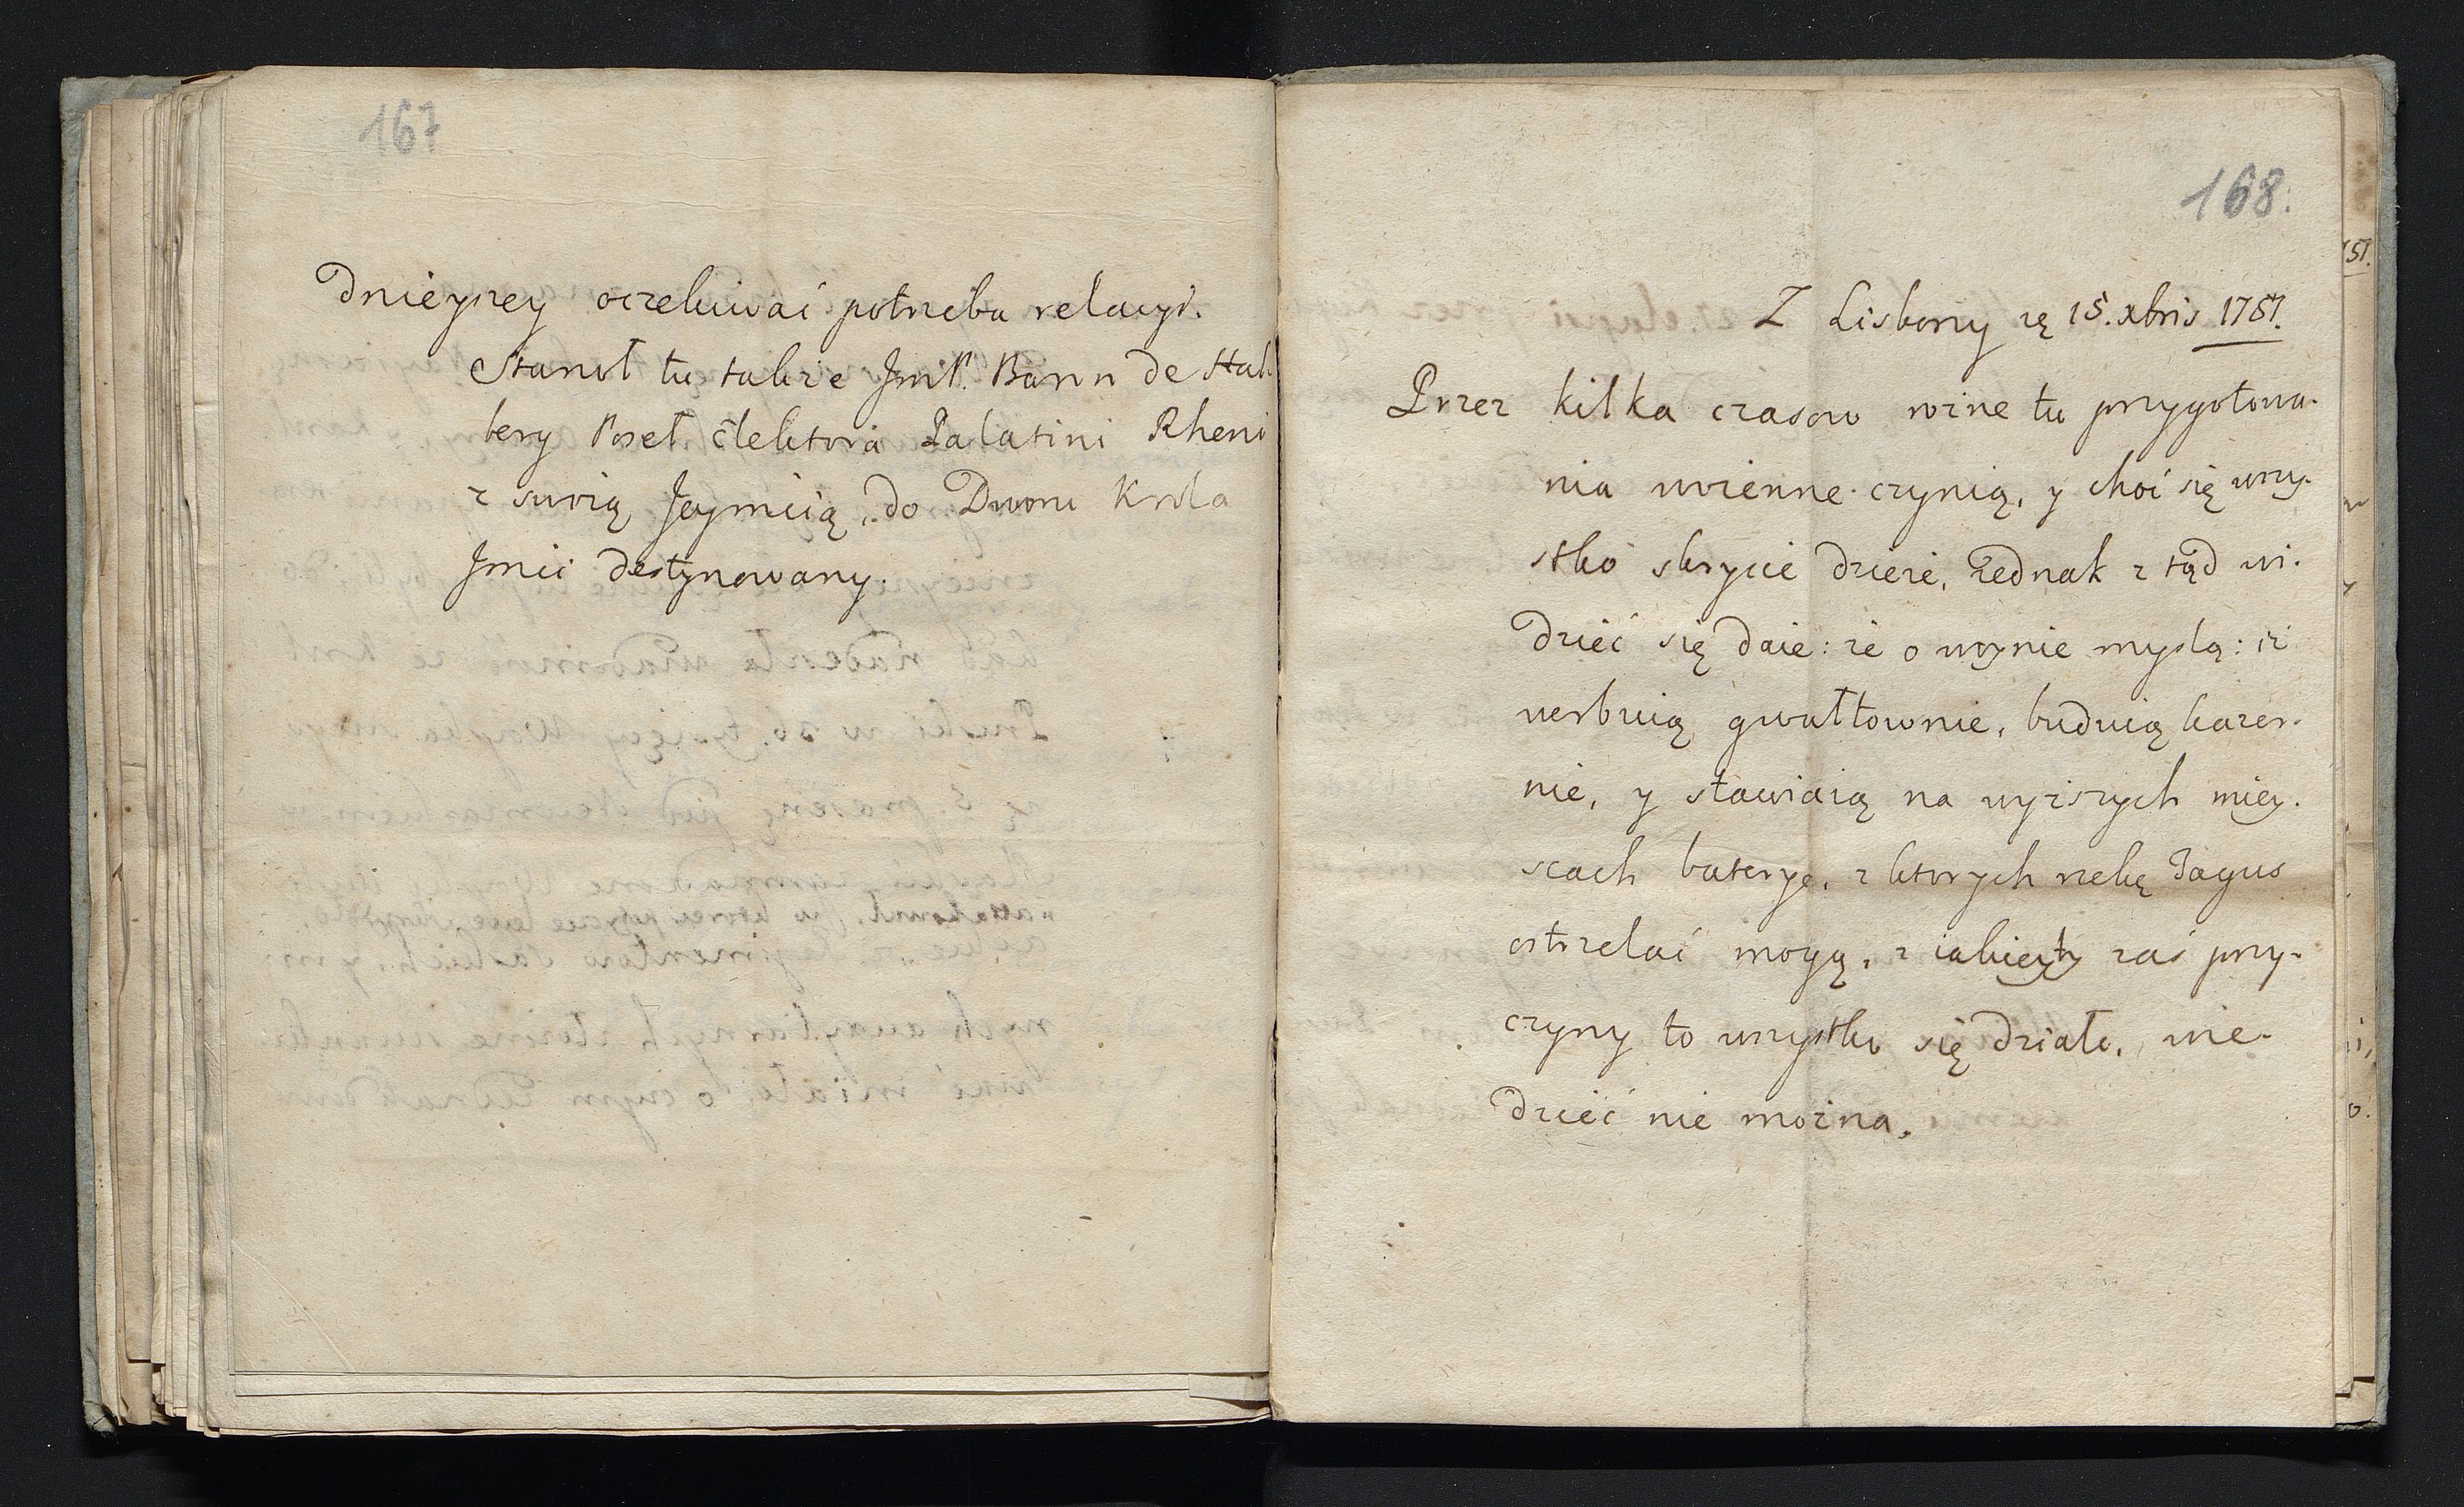 167
dnieyszey oczekiwać potrzeba relacyi.
Stanoł tu także JmP. Baron de Stal
berg Poseł Elektora Palatini Rheni
z swoią Jeymcią, do Dworu Krola
Jmci destynowany.
168.
Z Lisbony zę 15. xbris 1751.
Przez kilka czasow rożne tu przygotowa-
nia woienne czynią, y choć się wszy-
stko skrycie dzieie, Jednak z tąd wi-
dzieć się daie: że o woynie myslą: iż
werbuią gwałtownie, buduią kazer-
nie, y stawiaią na wyższych miey-
scach baterye, z ktorych rzekę Tagus
ostrzelać mogą, z iakieyby zaś przy-
czyny to wszystko się działo, wie-
dzieć nie można.